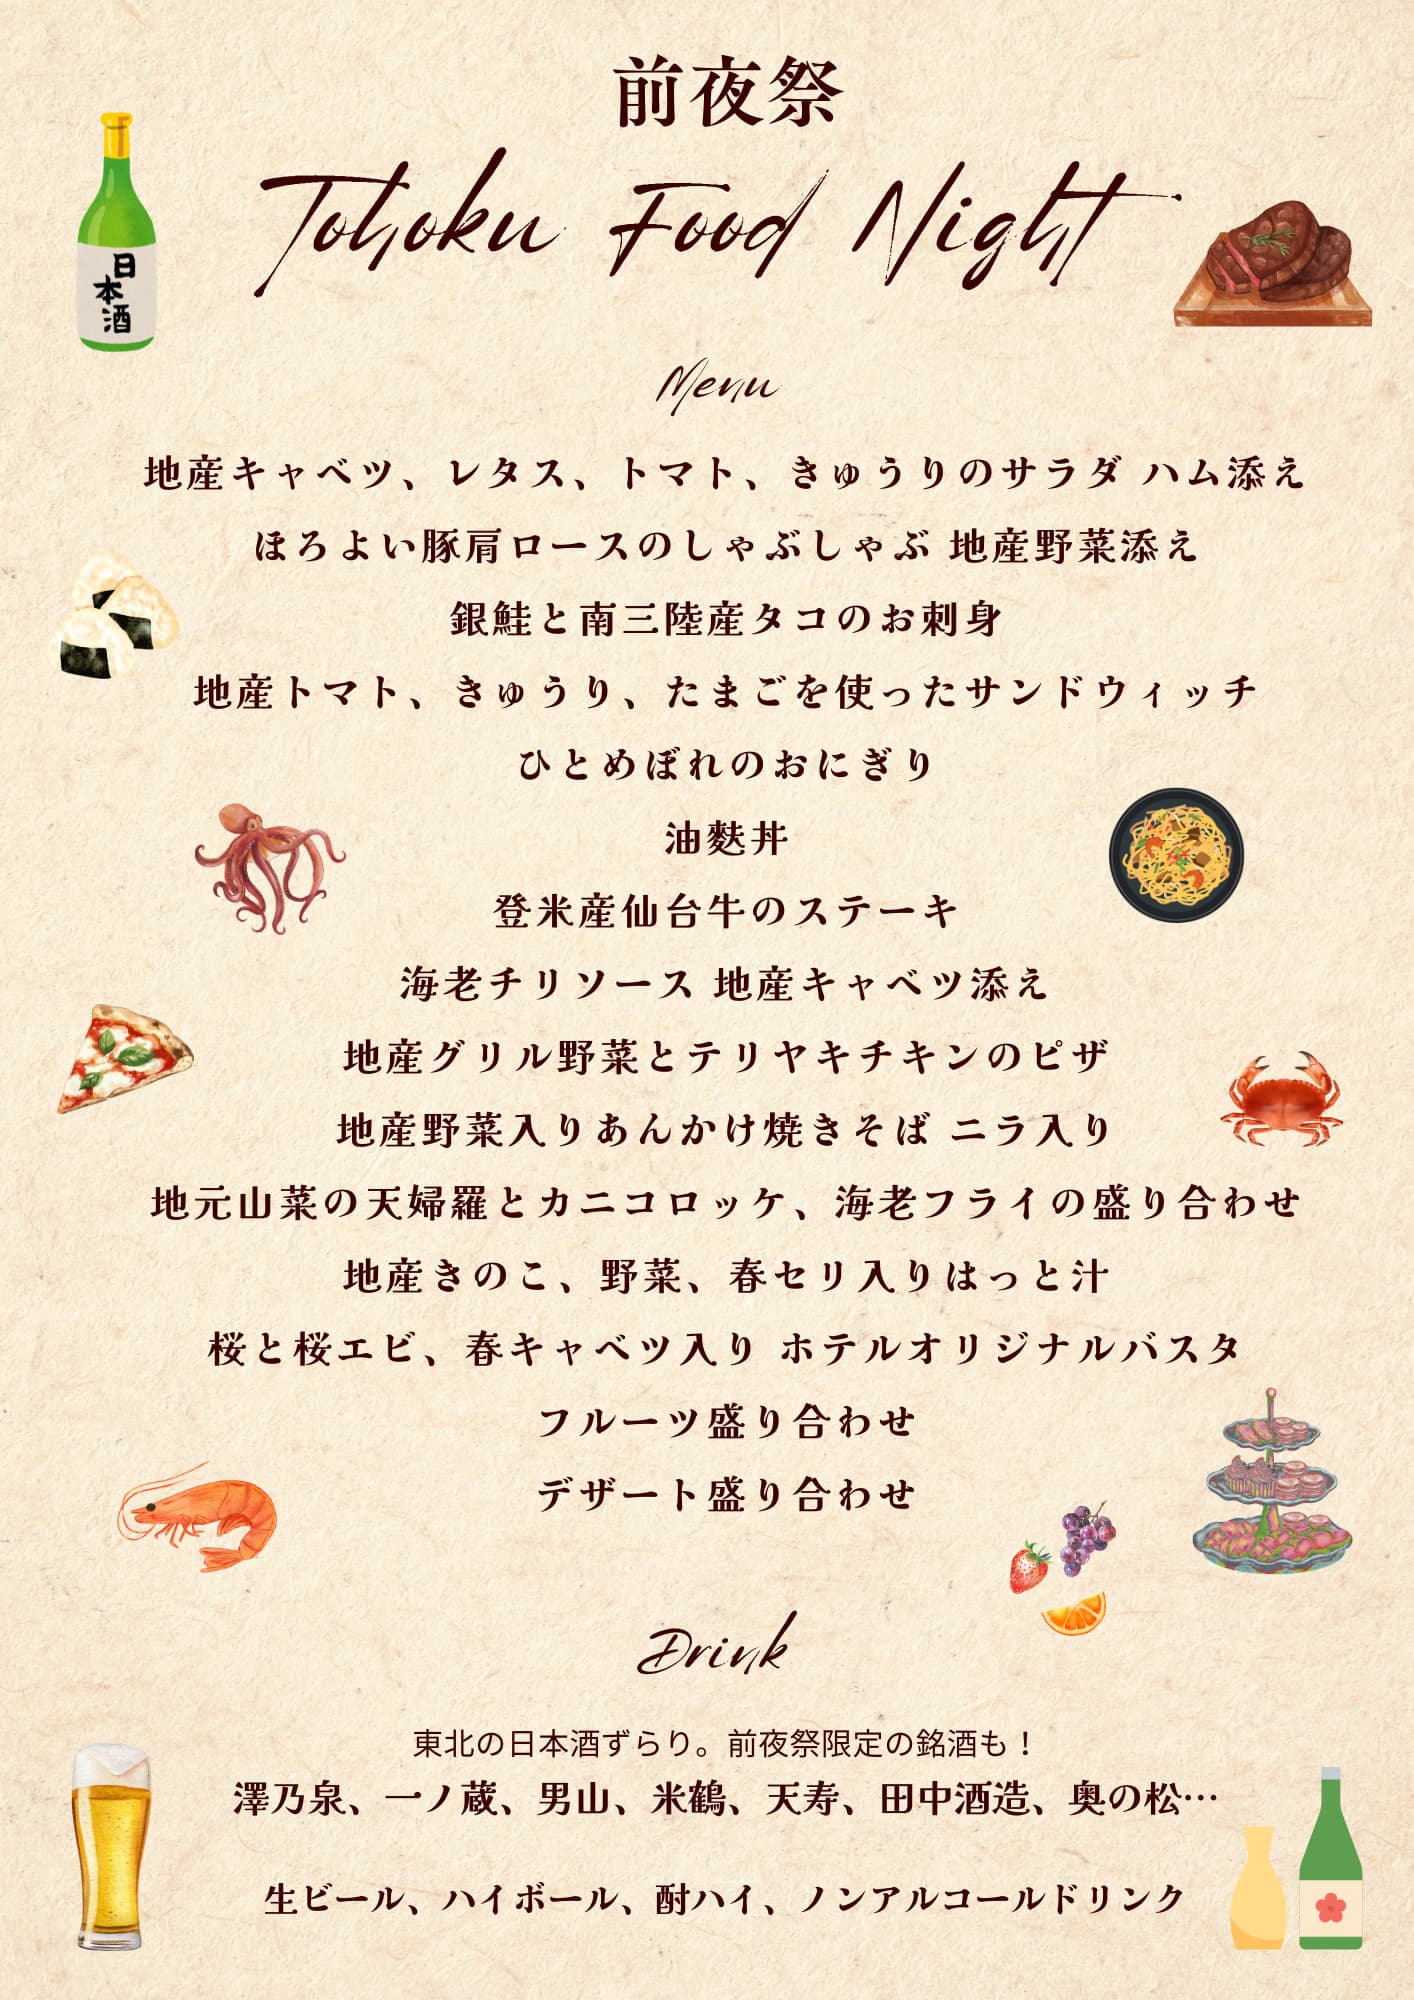 前夜祭
Tohoku Food Night
日本酒
Menu
地産キャベツ、レタス、トマト、きゅうりのサラダ ハム添え
ほろよい豚肩ロースのしゃぶしゃぶ 地産野菜添え
銀鮭と南三陸産タコのお刺身
地産トマト、きゅうり、たまごを使ったサンドウィッチ
ひとめぼれのおにぎり
油麩丼
登米産仙台牛のステーキ
海老チリソース 地産キャベツ添え
地産グリル野菜とテリヤキチキンのピザ
地産野菜入りあんかけ焼きそば ニラ入り
地元山菜の天婦羅とカニコロッケ、海老フライの盛り合わせ
地産きのこ、野菜、春セリ入りはっと汁
桜と桜エビ、春キャベツ入り ホテルオリジナルパスタ
フルーツ盛り合わせ
デザート盛り合わせ
Drink
東北の日本酒ずらり。前夜祭限定の銘酒も！
澤乃泉、一ノ蔵、男山、米鶴、天寿、田中酒造、奥の松…
生ビール、ハイボール、酎ハイ、ノンアルコールドリンク